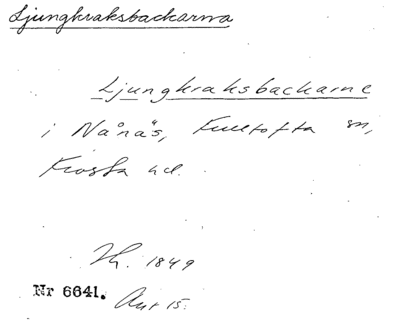 Ljungkraksbackarna
Ljungkraksbackarne
i Nånäs, Fulltofta sn,
Frosta hd.
1849
Nr 6641.